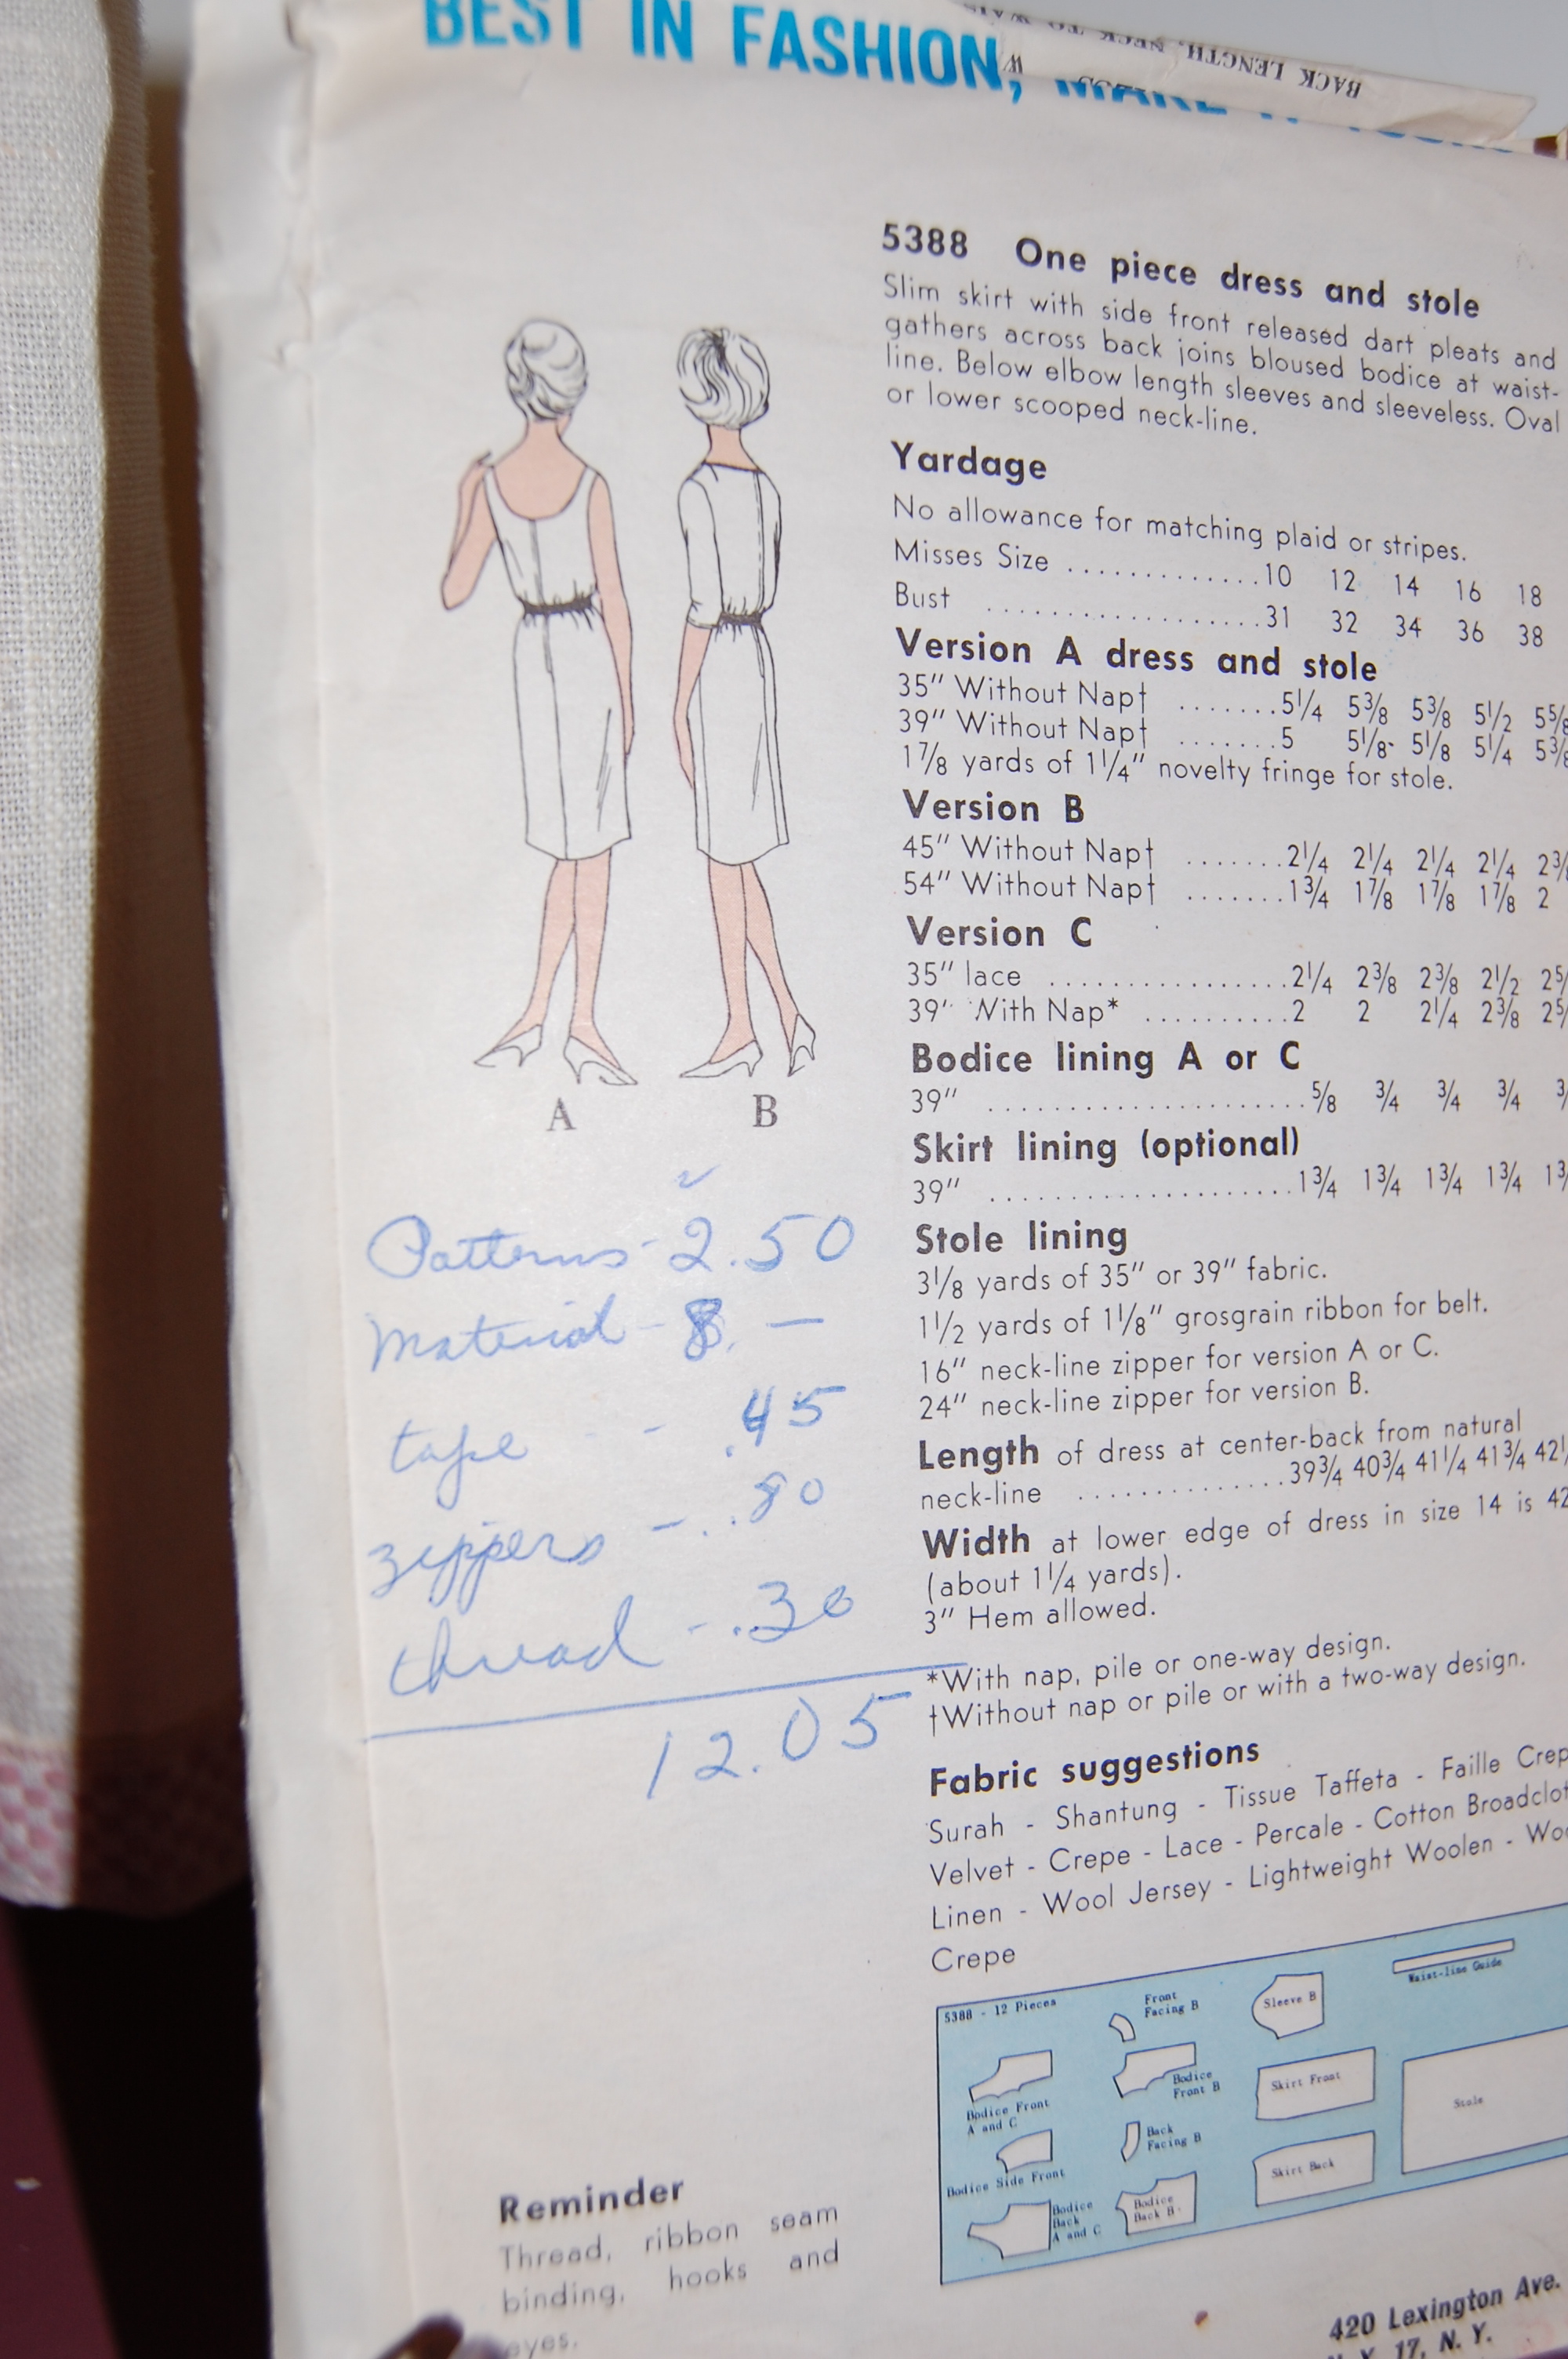 BEST IN FASHION,
BACK LENGTH, NECK TO
5388 One piece dress and stole
Slim skirt with side front released dart pleats and
gathers across back joins bloused bodice at waist-
line. Below elbow length sleeves and sleeveless. Oval
or lower scooped neck-line.
Yardage
No allowance for matching plaid or stripes.
Misses Size .............10 12 14 16 18
Bust ..................31 32 34 36 38
Version A dress and stole
35" Without Nap† .......5¼ 5⅜ 5⅜ 5½ 5⅝
39" Without Nap† .......5 5⅛ 5⅛ 5¼ 5⅜
1⅞ yards of 1¼" novelty fringe for stole.
Version B
45" Without Nap† .......2¼ 2¼ 2¼ 2¼
54" Without Nap† .......1¾ 1⅞ 1⅞ 1⅞ 2
Version C
35" lace ................2¼ 2⅜ 2⅜ 2½
39" With Nap* ..........2 2 2¼ 2⅜
Bodice lining A or C
39" .....................⅝ ¾ ¾ ¾
Skirt lining (optional)
39" ....................1¾ 1¾ 1¾ 1¾
Stole lining
3⅛ yards of 35" or 39" fabric.
1½ yards of 1⅛" grosgrain ribbon for belt.
16" neck-line zipper for version A or C.
24" neck-line zipper for version B.
Length of dress at center-back from natural
neck-line ..............39¾ 40¾ 41¼ 41¾
Width at lower edge of dress in size 14 is 42
(about 1¼ yards).
3" Hem allowed.
*With nap, pile or one-way design.
†Without nap or pile or with a two-way design.
Fabric suggestions
Surah - Shantung - Tissue Taffeta - Faille Crep
Velvet - Crepe - Lace - Percale - Cotton Broadclot
Linen - Wool Jersey - Lightweight Woolen - Woo
Crepe
A B
Patterns - 2.50
Material - 8. —
tape - - .45
zippers - .80
thread - .30
12.05
5388 - 12 Pieces
Front
Facing B
Sleeve B
Waist-line Guide
Bodice Front
A and C
Bodice
Front B
Skirt Front
Stole
Bodice Side Front
Back
Facing B
Skirt Back
Bodice
Back
A and C
Bodice
Back B
Reminder
Thread, ribbon seam
binding, hooks and
eyes.
420 Lexington Ave.
N. Y. 17, N. Y.